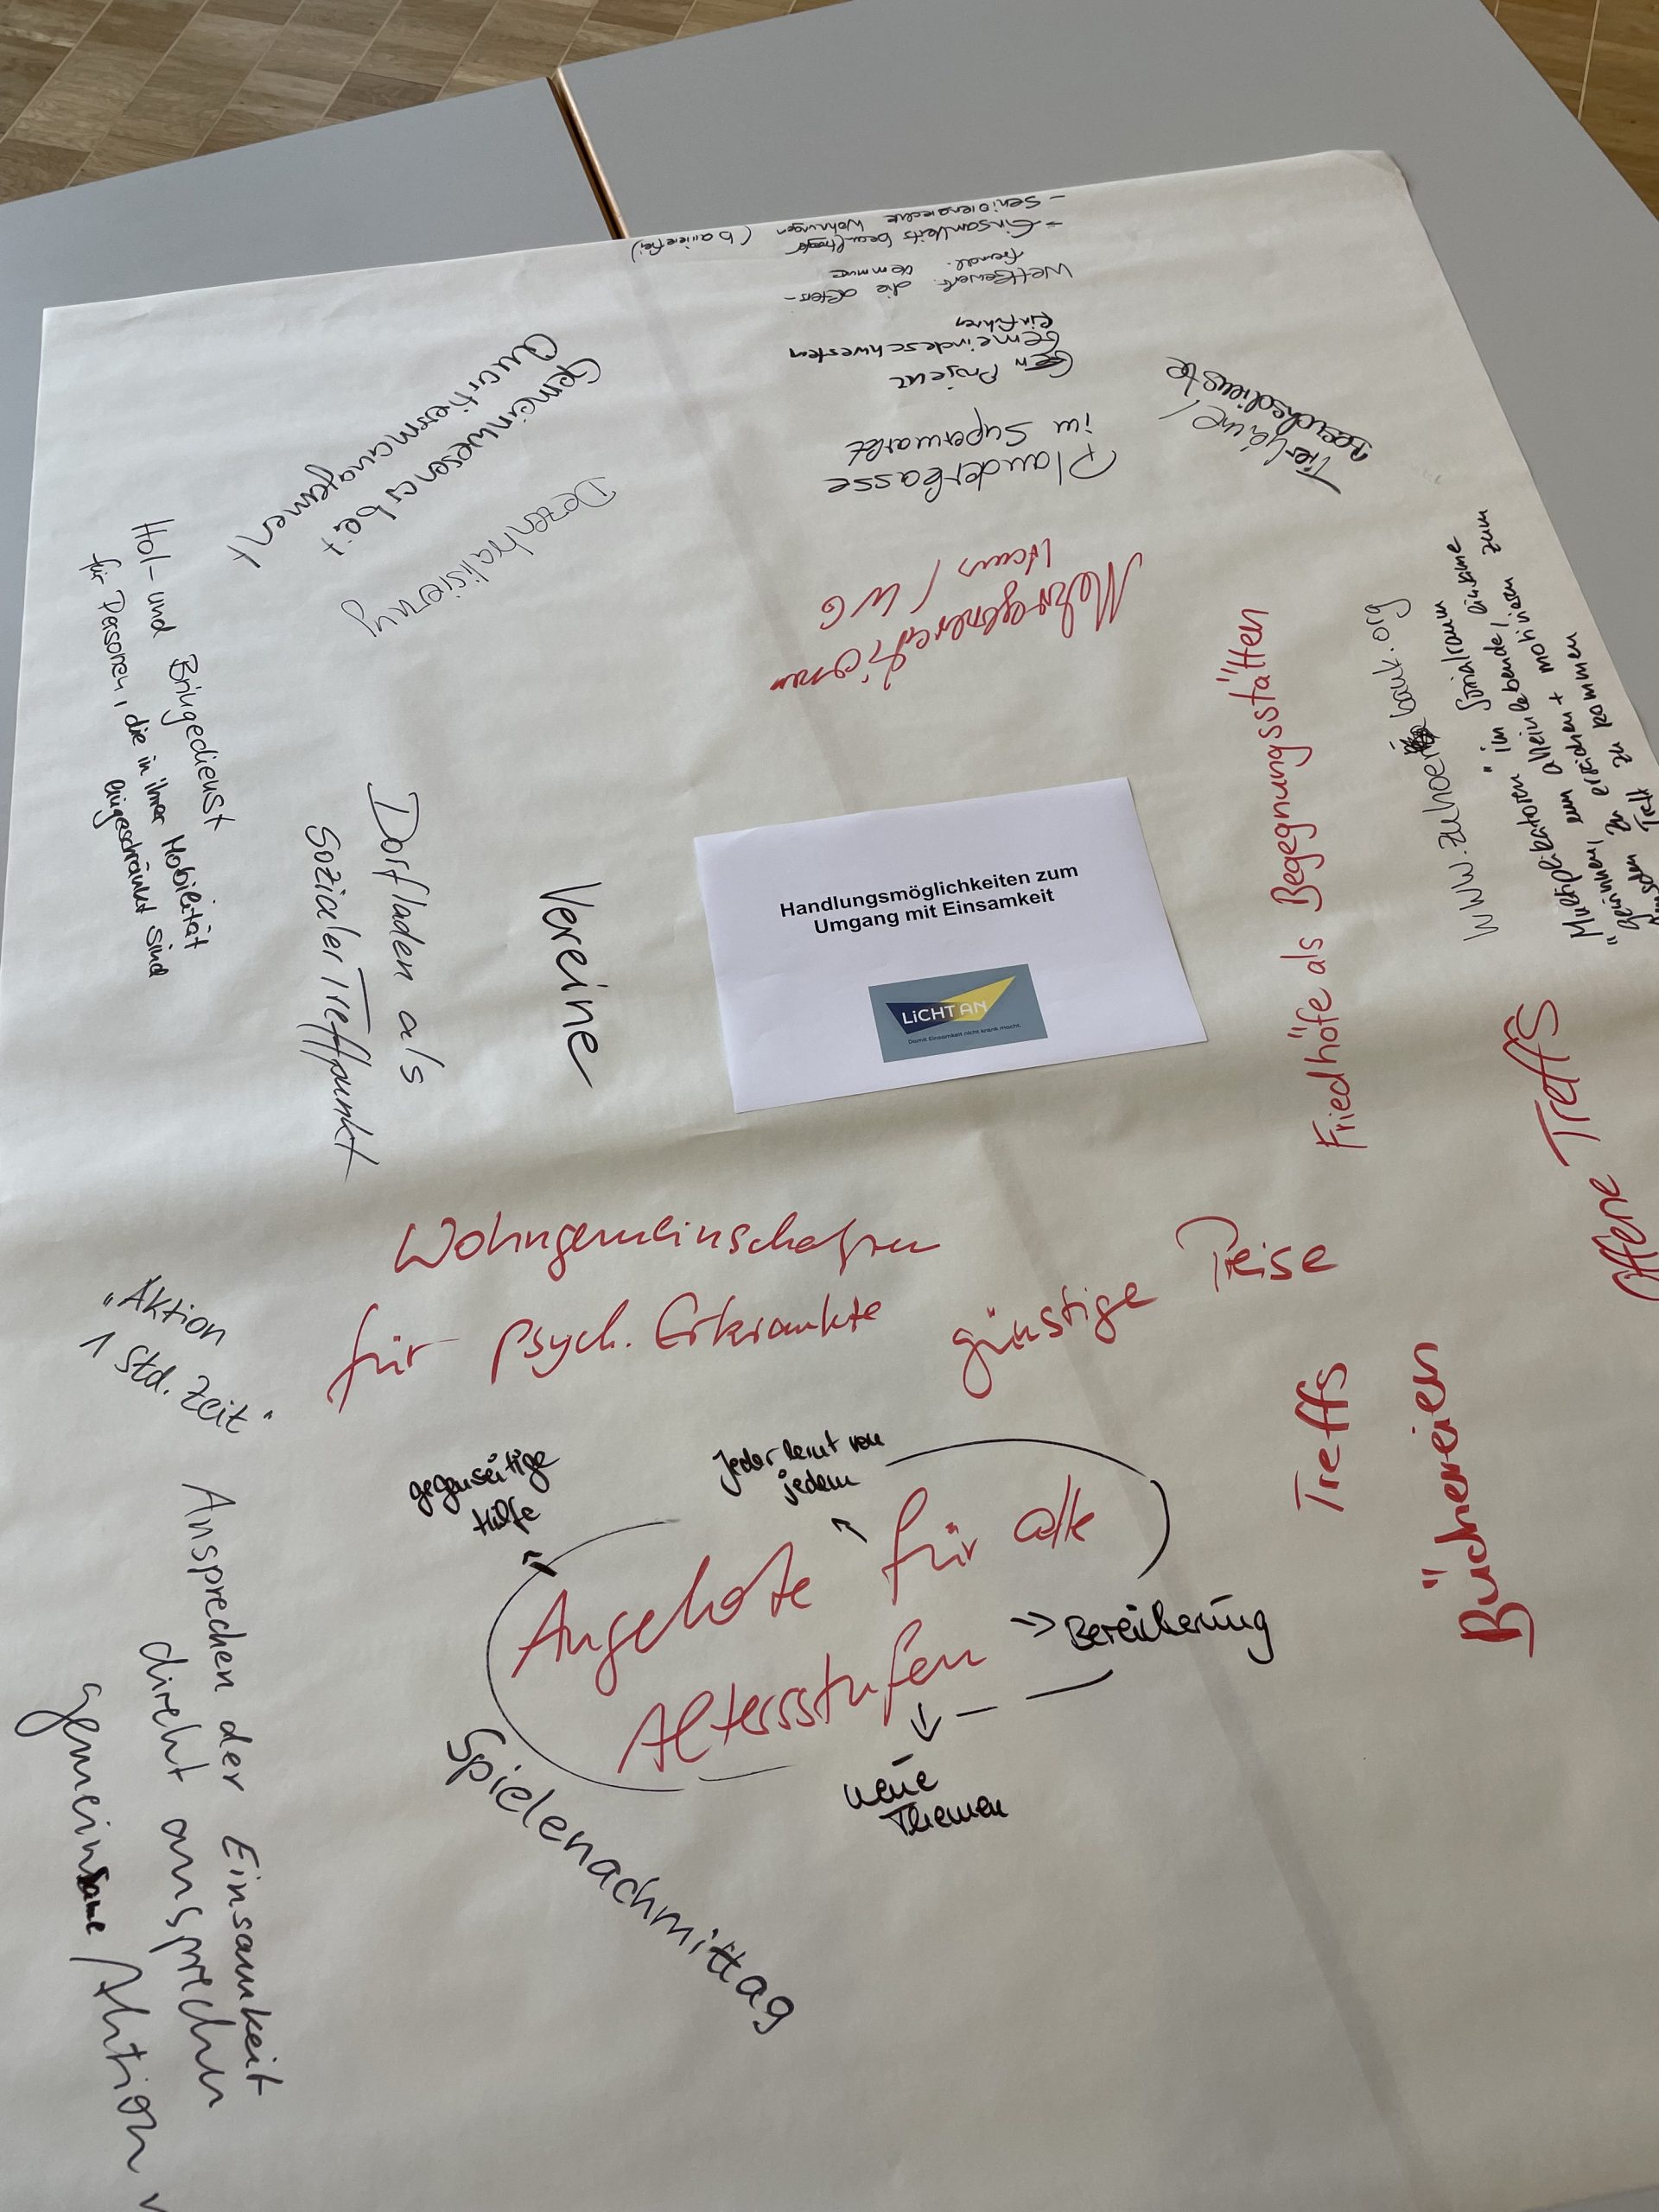 Handlungsmöglichkeiten zum
Umgang mit Einsamkeit
LiCHT AN
Damit Einsamkeit nicht krank macht.
(barrierefrei)
Wohnungen
- Einsamkeitsbeauftragte
Wettbewerb: die alters-
freundl.
Projekt
Gemeindeschwestern
einführen
Plauderkasse
im Supermarkt
Mehrgenerationen
Haus / WG
Besuchsdienste
Gemeinwesenarbeit
Quartiersmanagement
Dezentralisierung
Hol- und Bringedienst
für Personen, die in ihrer Mobilität
eingeschränkt sind
Dorfladen als
Sozialer Treffpunkt
Vereine
Friedhöfe als Begegnungsstätten
www.zuhoerbank.org
Multiplikatoren im Sozialraum
gewinnen, um allein lebende, einsame
zu erreichen + motivieren zum
Treff zu kommen
Offene Treffs
Wohngemeinschaften
für psych. Erkrankte
günstige Preise
Treffs
Büchereien
"Aktion
1 Std. Zeit"
gegenseitige
Hilfe
jeder lernt von
jedem
Angebote für alle
Altersstufen
-> Bereicherung
neue
Themen
Spielenachmittag
Ansprechen der Einsamkeit
direkt ansprechen
gemeinsame Aktion